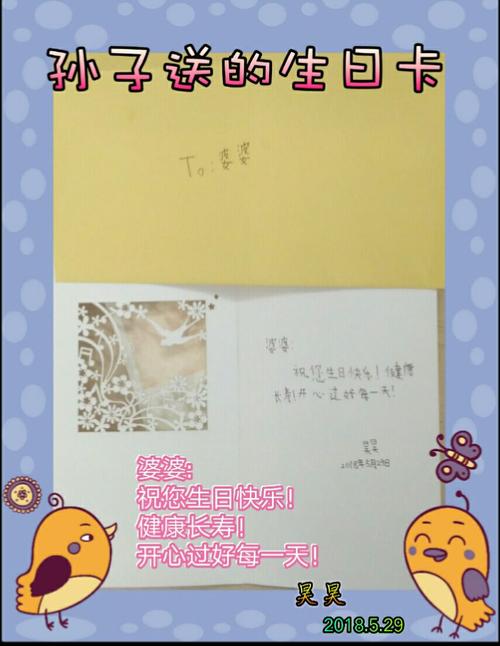 孙子送的生日卡
To:婆婆
婆婆:
祝您生日快乐!健康
长寿!开心过好每一天!
昊昊
2018年5月29日
婆婆:
祝您生日快乐!
健康长寿!
开心过好每一天!
昊昊
2018.5.29